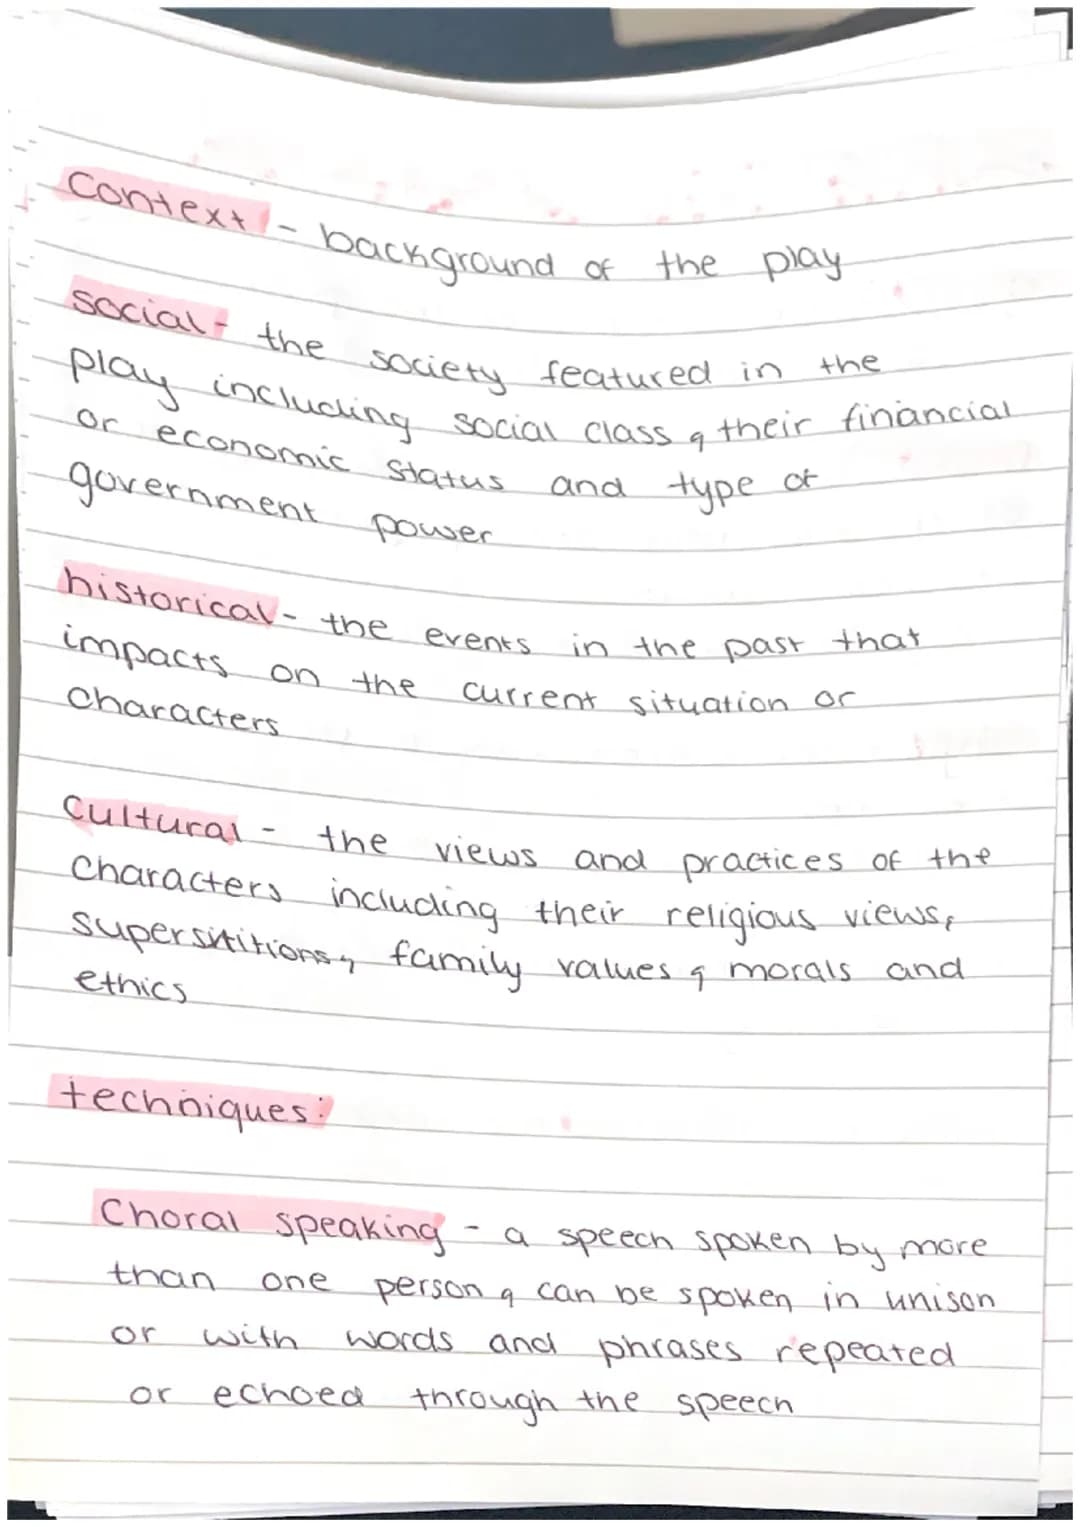 Context - background of the play
social - the society featured in the
play including social class, their financial
or economic status and type of
government power
historical - the events in the past that
impacts on the current situation or
characters
Cultural - the views and practices of the
characters including their religious views,
supersititions, family values, morals and
ethics
techniques:
Choral speaking - a speech spoken by more
than one person, can be spoken in unison
or with words and phrases repeated
or echoed through the speech